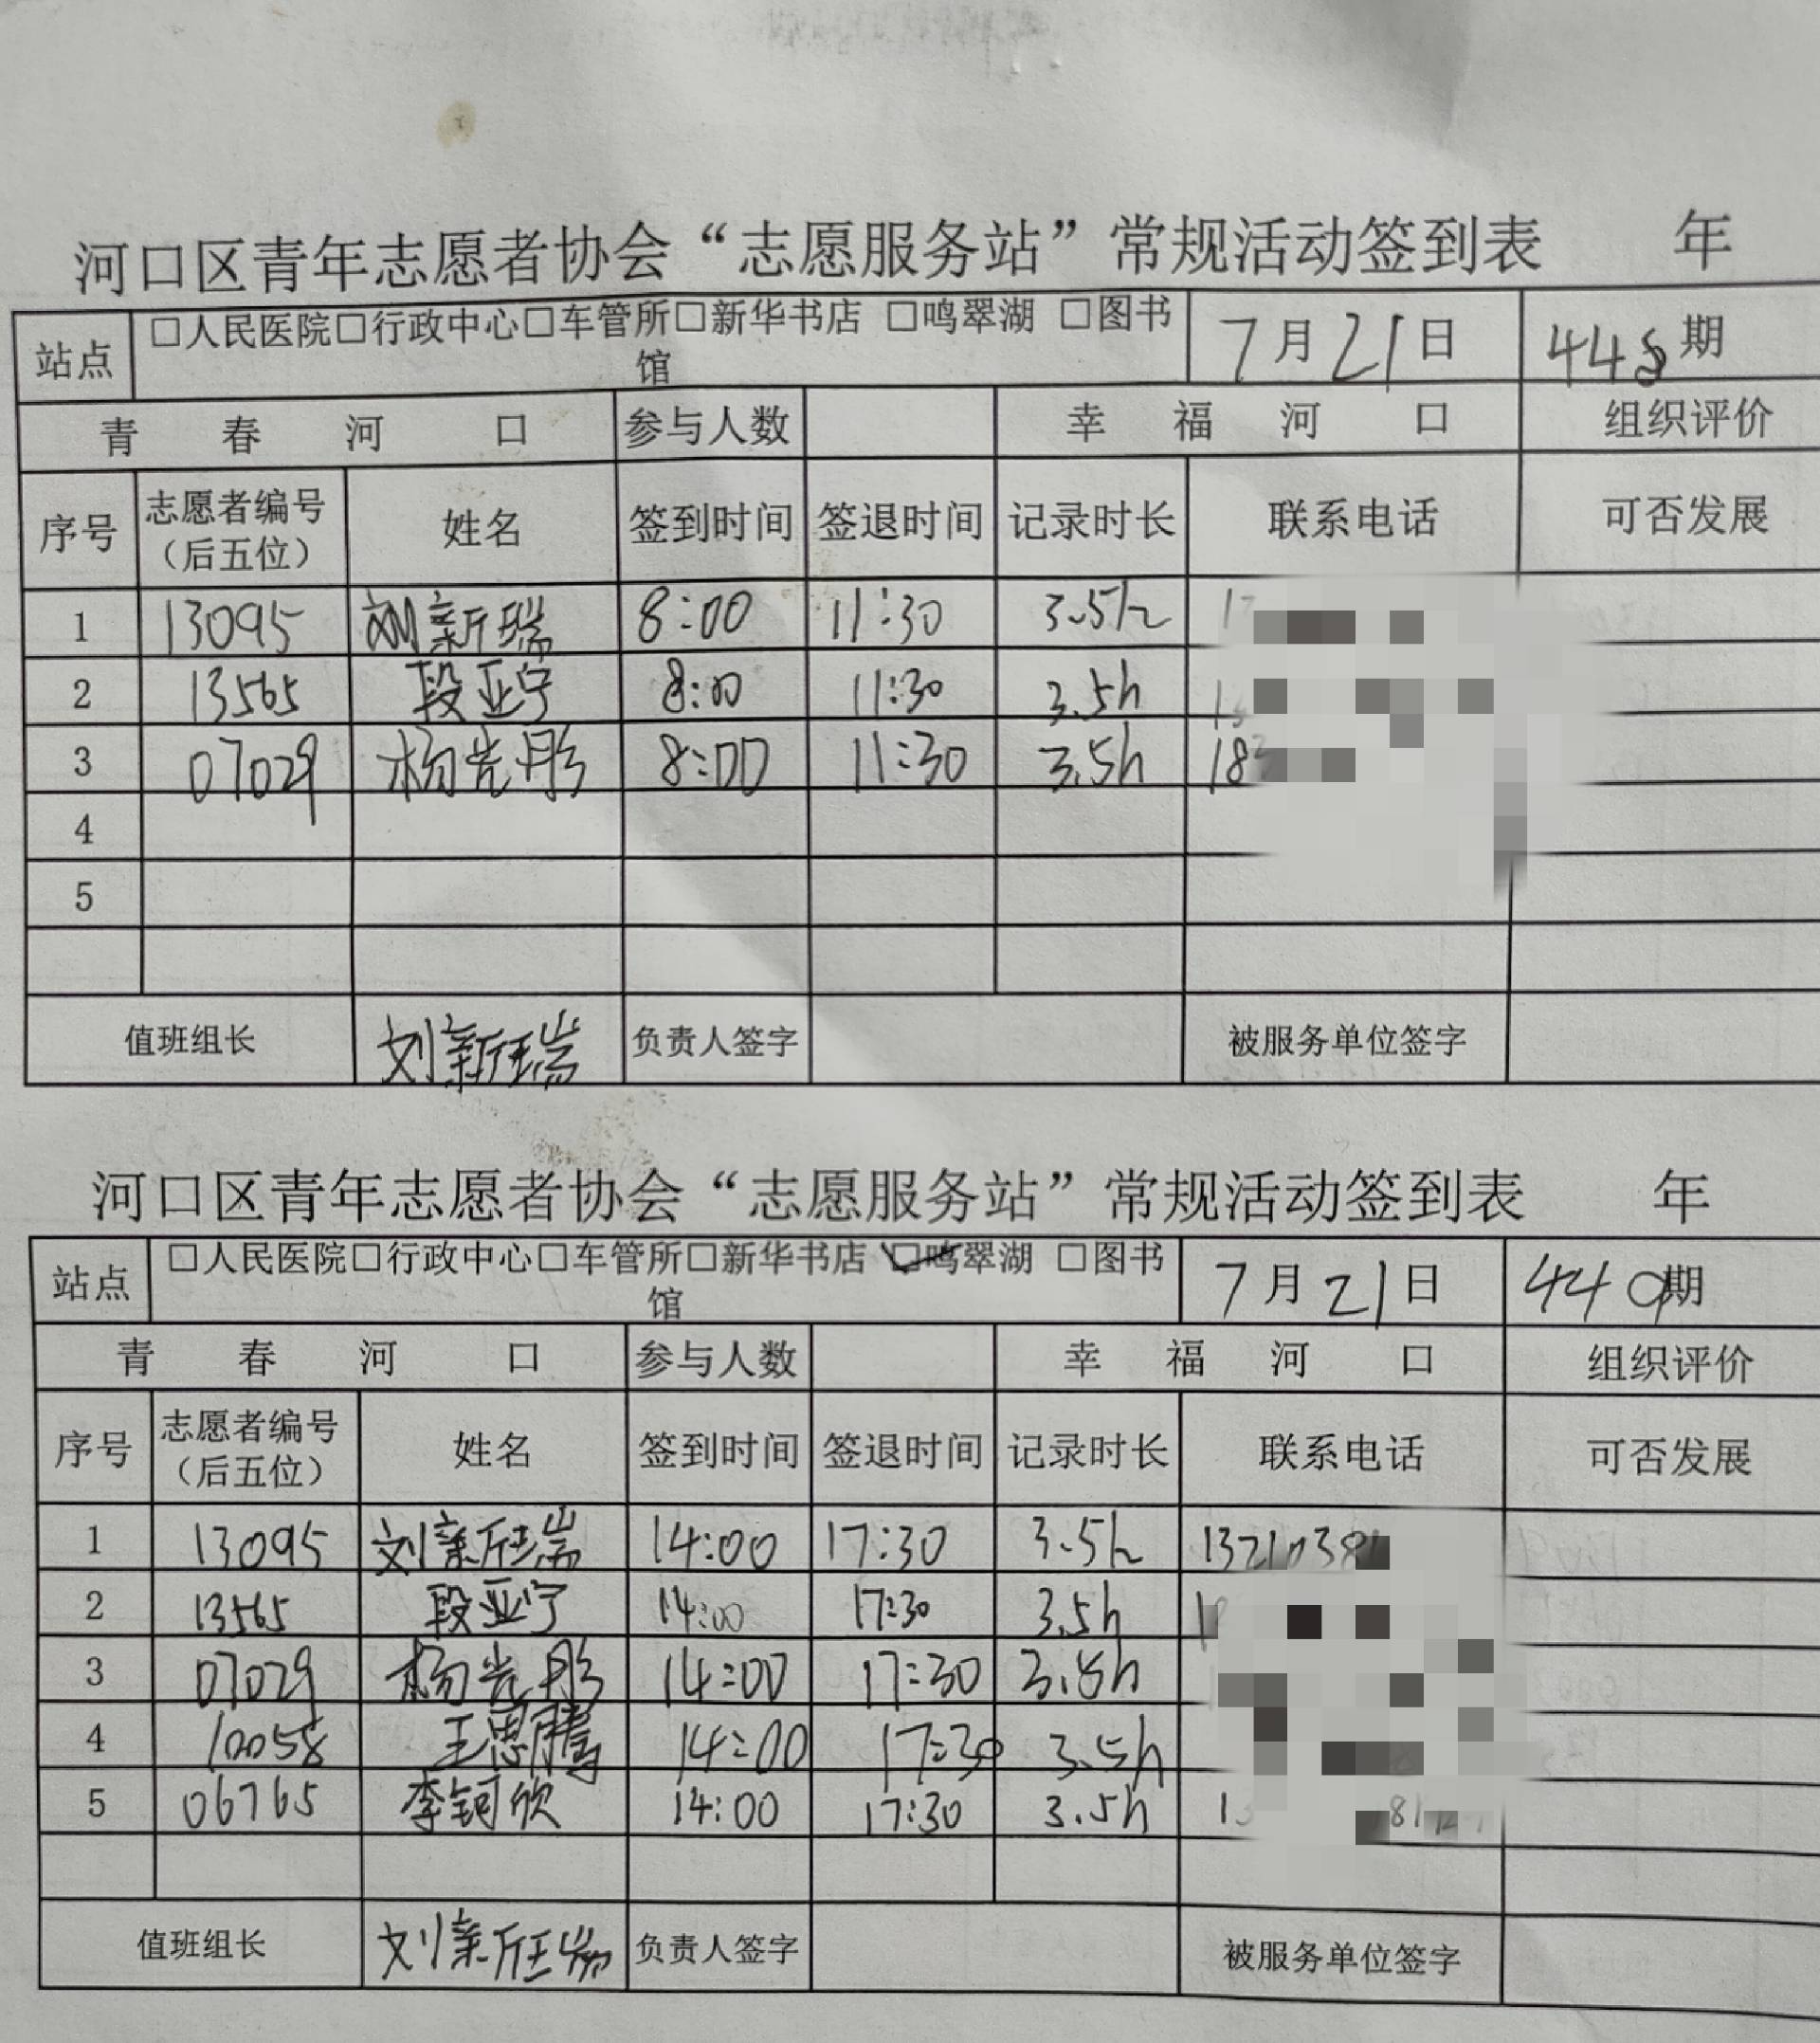 河口区青年志愿者协会“志愿服务站”常规活动签到表 年
站点 □人民医院□行政中心□车管所□新华书店 □鸣翠湖 □图书馆 7月21日 448期
青春河口 参与人数 幸福河口 组织评价
序号 志愿者编号（后五位） 姓名 签到时间 签退时间 记录时长 联系电话 可否发展
1 13095 刘新瑞 8:00 11:30 3.5h
2 13565 段亚宁 8:00 11:30 3.5h
3 07029 杨光彤 8:00 11:30 3.5h 183
4
5
值班组长 刘新瑞 负责人签字 被服务单位签字
河口区青年志愿者协会“志愿服务站”常规活动签到表 年
站点 □人民医院□行政中心□车管所□新华书店 ☑鸣翠湖 □图书馆 7月21日 449期
青春河口 参与人数 幸福河口 组织评价
序号 志愿者编号（后五位） 姓名 签到时间 签退时间 记录时长 联系电话 可否发展
1 13095 刘新瑞 14:00 17:30 3.5h
2 13565 段亚宁 14:00 17:30 3.5h
3 07029 杨光彤 14:00 17:30 3.5h
4 10058 王思腾 14:00 17:30 3.5h
5 06765 李钶欣 14:00 17:30 3.5h
值班组长 刘新瑞 负责人签字 被服务单位签字